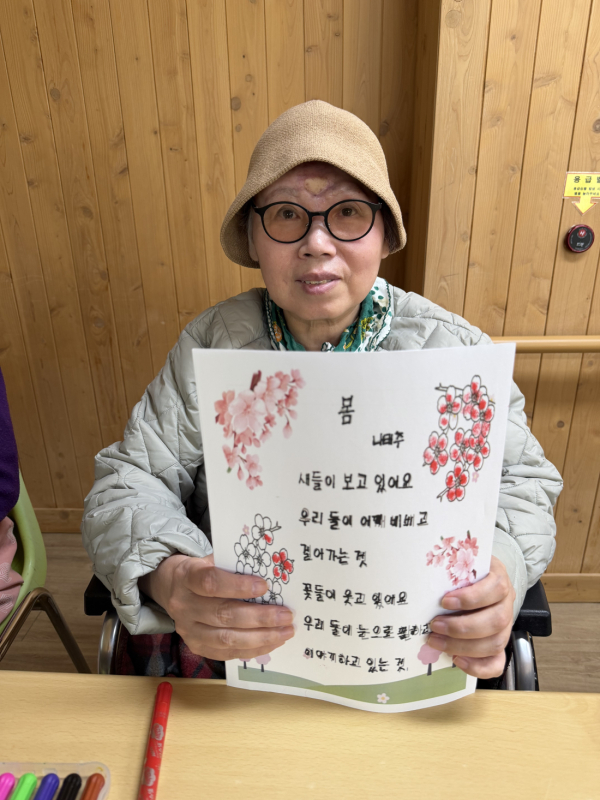 봄
나태주
새들이 보고 있어요
우리 둘이 어깨 비비고
걸어가는 것
꽃들이 웃고 있어요
우리 둘이 눈으로
이야기하고 있는 것
응급